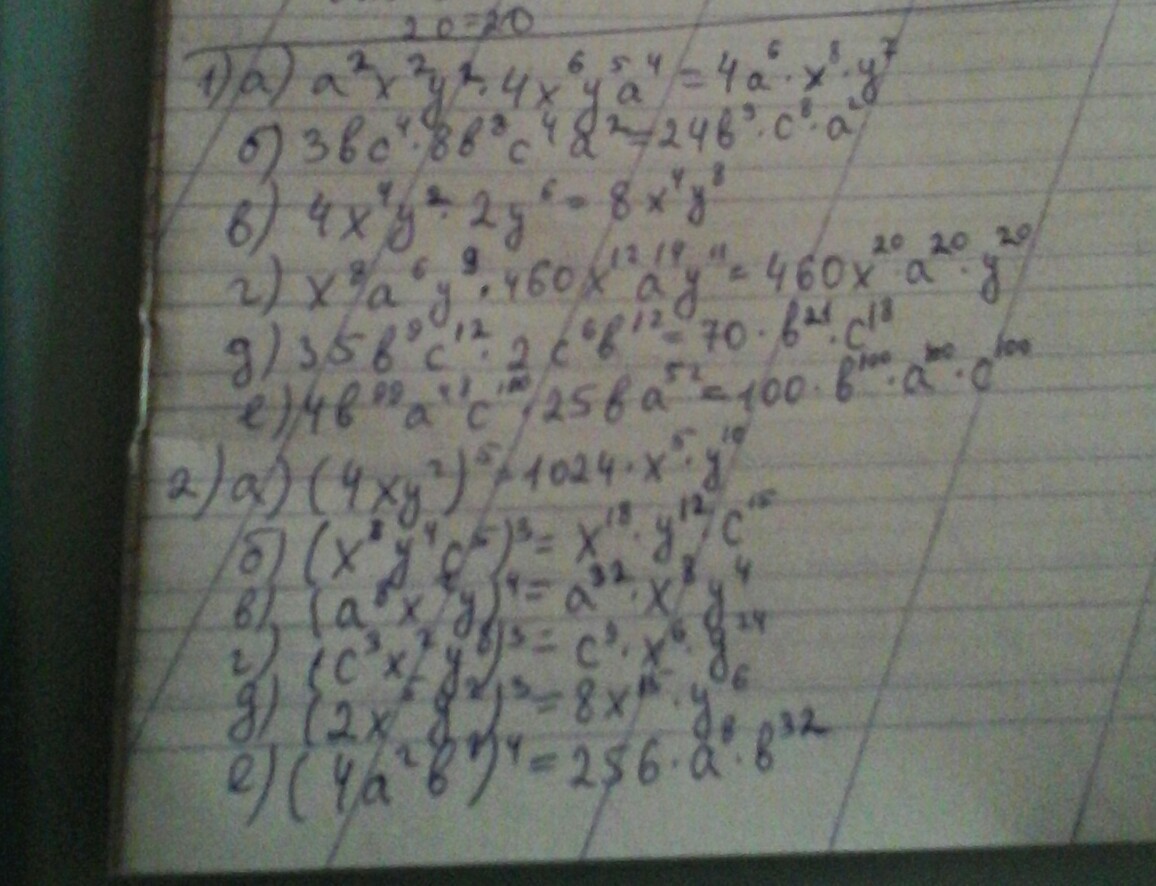 20=20
1) а) a²x²y²·4x⁶y⁵a⁴=4a⁶·x⁸·y⁷
б) 3bc⁴·8b⁸c⁴a²=24b⁹·c⁸·a²
в) 4x⁴y²·2y⁶=8x⁴y⁸
г) x⁸a⁶y⁹·460x¹²a¹⁴y¹¹=460x²⁰·a²⁰·y²⁰
д) 35b⁹c¹²·2c⁶b¹²=70·b²¹·c¹⁸
е) 4b⁹⁹a⁴⁸c¹⁰⁰·25ba⁵²=100·b¹⁰⁰·a¹⁰⁰·c¹⁰⁰
2) а) (4xy²)⁵=1024·x⁵·y¹⁰
б) (x⁸y⁴c⁵)³=x¹⁸·y¹²·c¹⁵
в) (a⁸x²y)⁴=a³²·x⁸y⁴
г) (c³x²y⁸)³=c⁹·x⁶·y²⁴
д) (2x⁵y²)³=8x¹⁵·y⁶
е) (4a²b⁸)⁴=256·a⁸·b³²